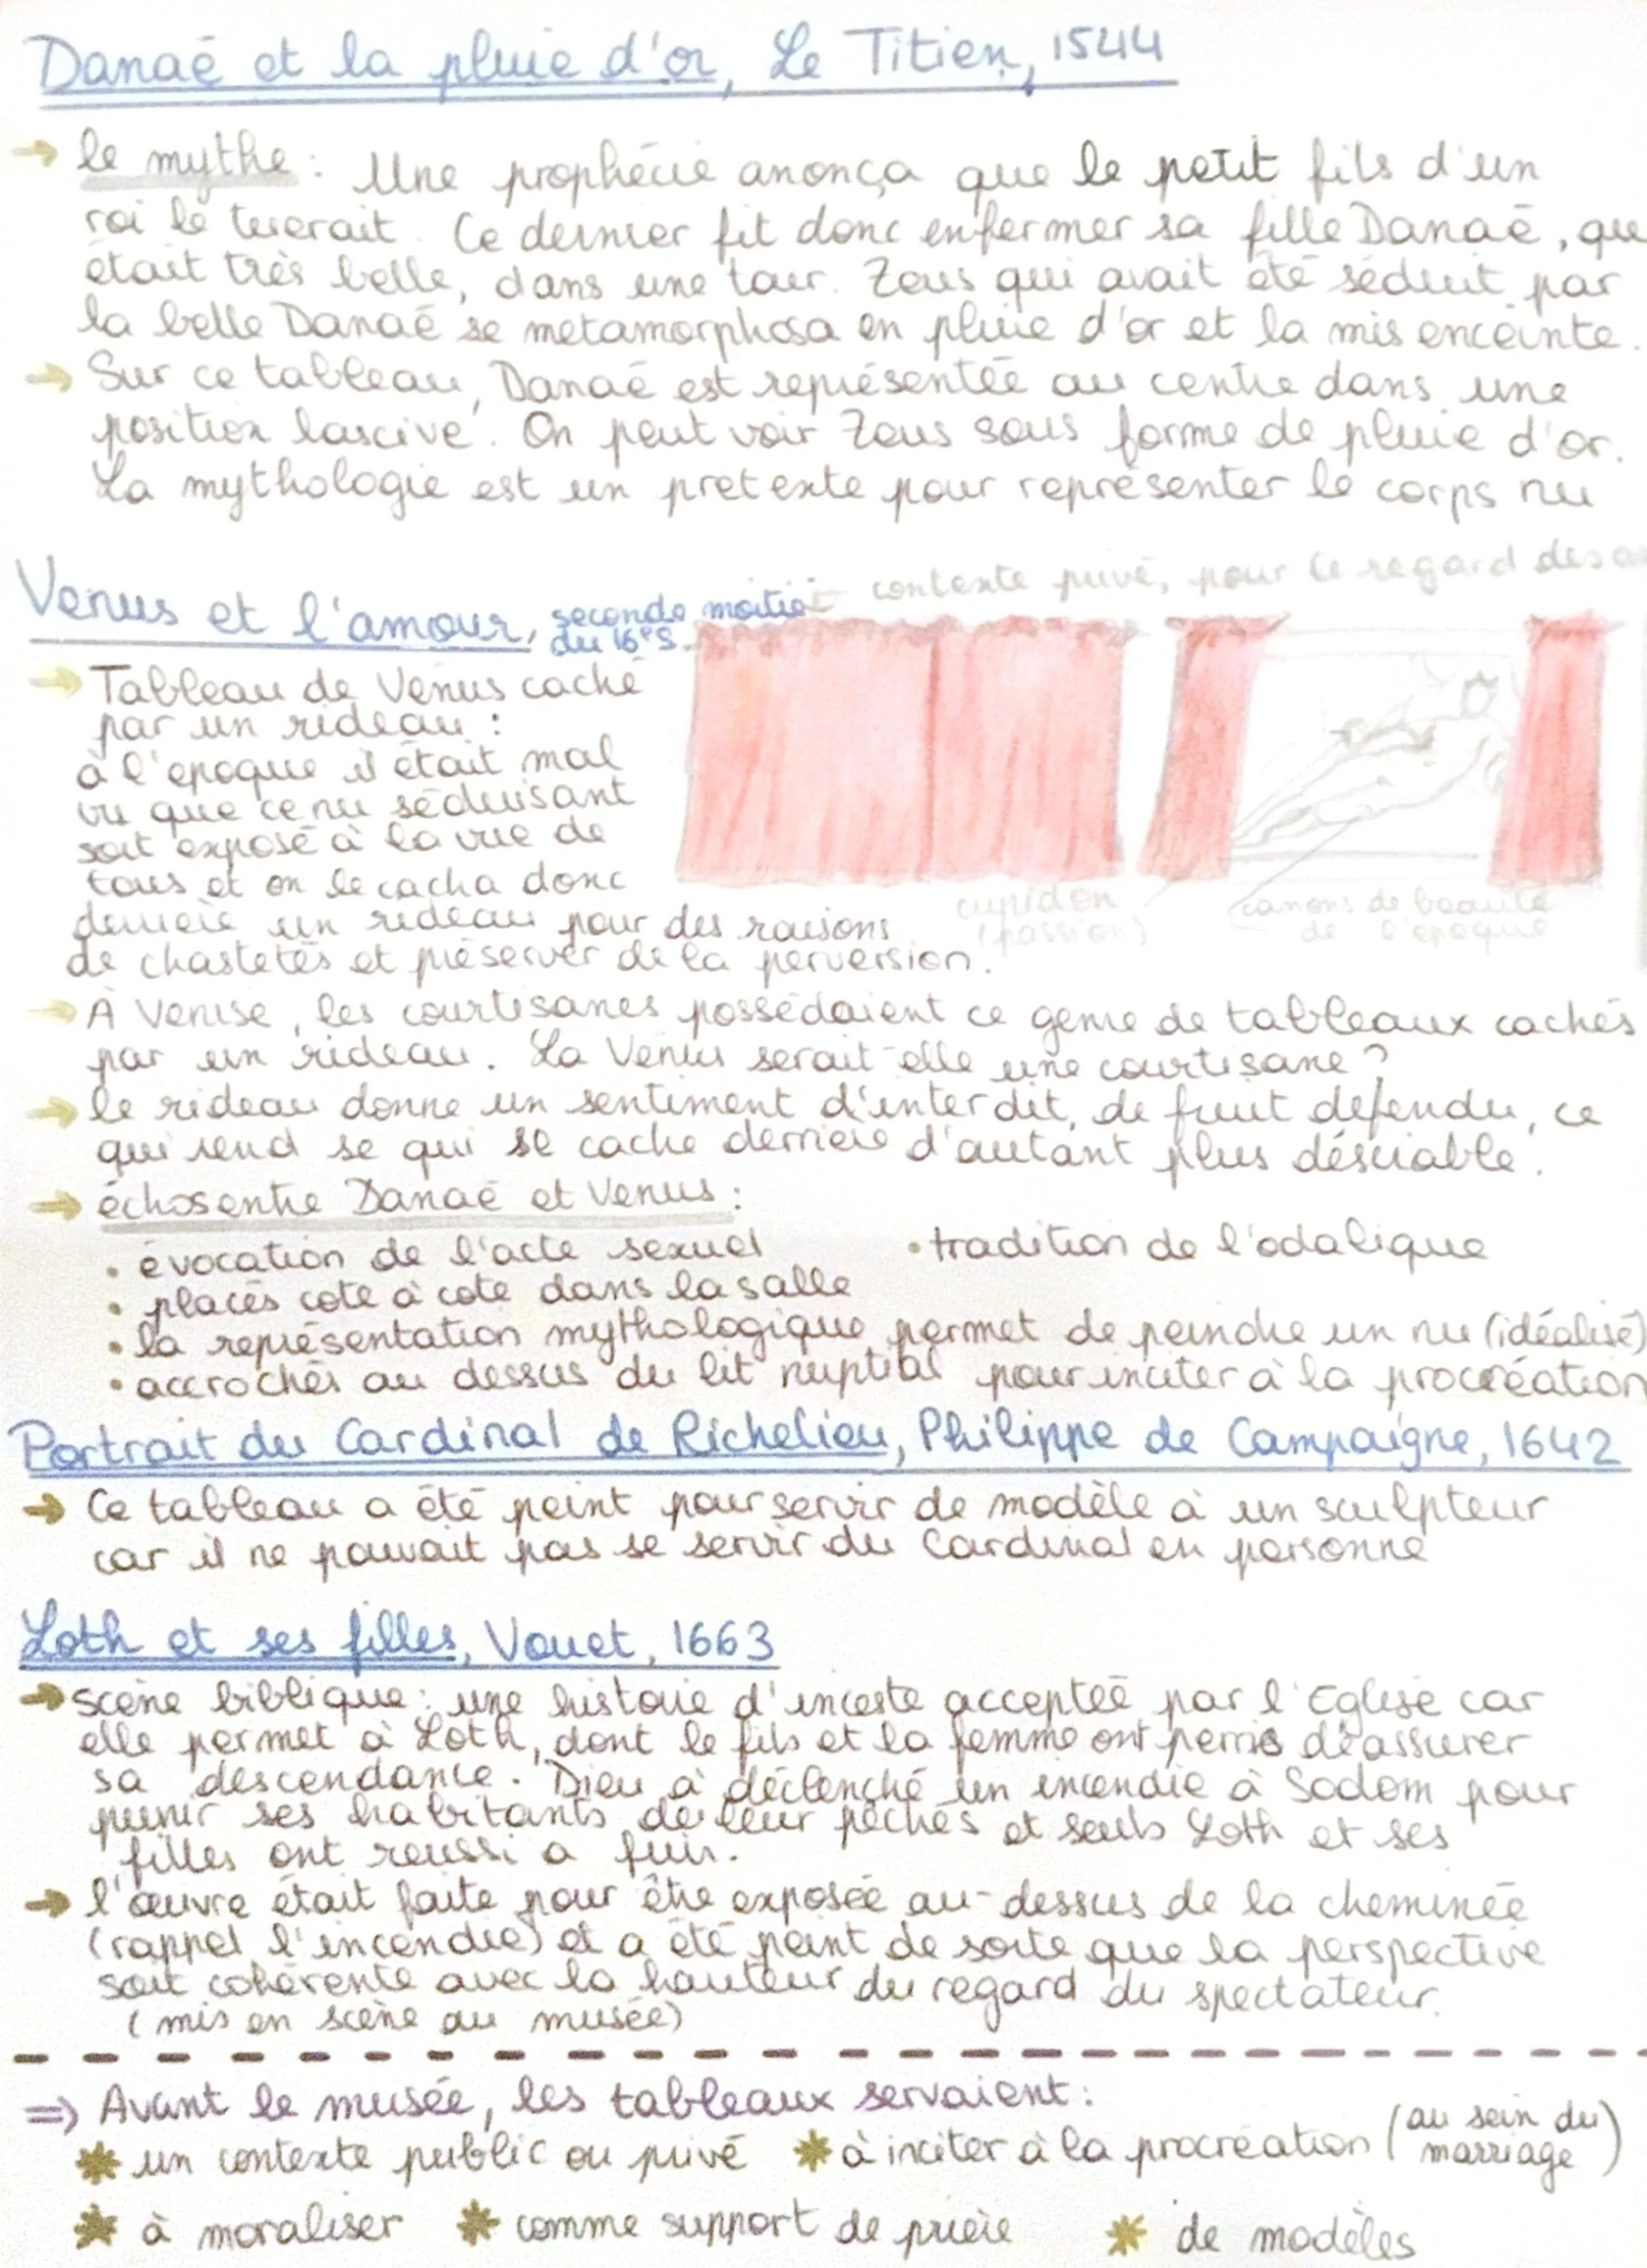 Danaé et la pluie d'or, Le Titien, 1544
→ le mythe : Une prophécie anonça que le petit fils d'un
roi le tuerait. Ce dernier fit donc enfermer sa fille Danaé, qu
était très belle, dans une tour. Zeus qui avait été séduit par
la belle Danaé se métamorphosa en pluie d'or et la mis enceinte.
→ Sur ce tableau, Danaé est représentée au centre dans une
position lascive. On peut voir Zeus sous forme de pluie d'or.
La mythologie est un prétexte pour représenter le corps nu
contexte privé, pour le regard des
Venus et l'amour, seconde moitié
du 16e S.
→ Tableau de Venus caché
par un rideau :
à l'époque il était mal
vu que ce nu séduisant
soit exposé à la vue de
tous et on le cacha donc
derrière un rideau pour des raisons
de chastetés et préserver de la perversion.
cupidon
(passion)
canons de beauté
de l'époque
→ À Venise, les courtisanes possédaient ce genre de tableaux cachés
par un rideau. La Venus serait-elle une courtisane ?
→ le rideau donne un sentiment d'interdit, de fruit défendu, ce
qui rend se qui se cache derrière d'autant plus désirable.
→ échos entre Danaé et Venus :
• évocation de l'acte sexuel • tradition de l'odalique
• placés cote à cote dans la salle
• la représentation mythologique permet de peindre un nu (idéalisé)
• accrochés au dessus du lit nuptial pour inciter à la procréation
Portrait du Cardinal de Richelieu, Philippe de Campaigne, 1642
→ Ce tableau a été peint pour servir de modèle à un sculpteur
car il ne pouvait pas se servir du Cardinal en personne
Loth et ses filles, Vouet, 1663
→ scène biblique : une histoire d'inceste acceptée par l'Eglise car
elle permet à Loth, dont le fils et la femme ont perris d'assurer
sa descendance. Dieu à déclenché un incendie à Sodom pour
punir ses habitants de leur péchés et seuls Loth et ses
filles ont reussi a fuir.
→ l'œuvre était faite pour être exposée au-dessus de la cheminée
(rappel l'incendie) et a été peint de sorte que la perspective
soit cohérente avec la hauteur du regard du spectateur.
(mis en scène au musée)
⇒ Avant le musée, les tableaux servaient :
* un contexte public ou privé * à inciter à la procréation (au sein du
marriage)
* à moraliser * comme support de prière * de modèles